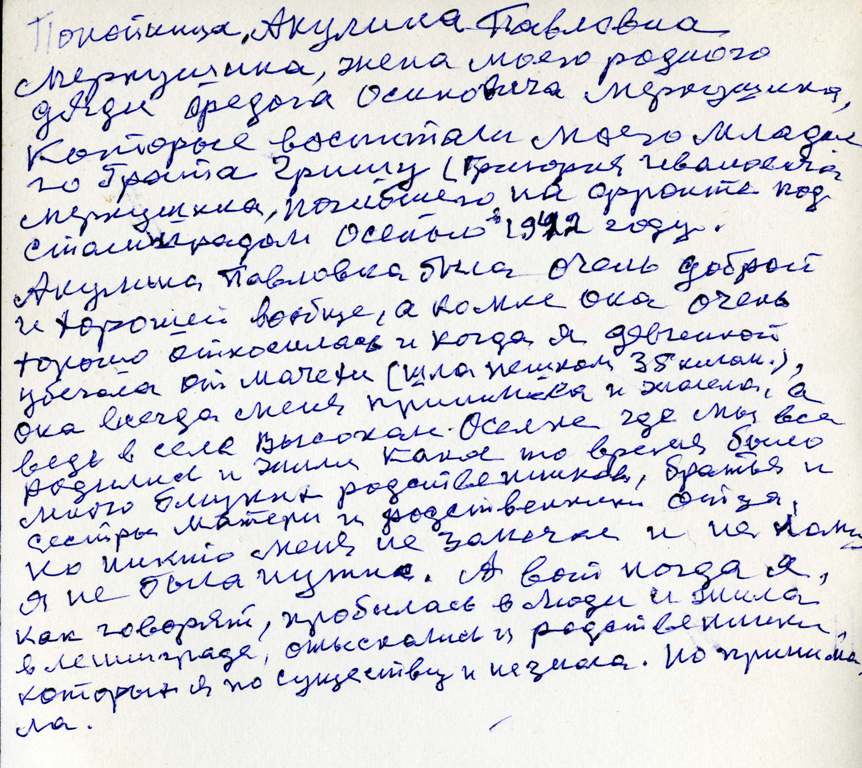 Покойница, Акулина Павловна
Меркушина, жена моего родного
дяди Федота Осиповича Меркушина,
которые воспитали моего младше
го брата Гришу (Григория Ивановича
Меркушина, погибшего на фронте под
Сталинградом осенью 1942 году.
Акулина Павловна была очень доброй
и хорошей вообще, а ко мне она очень
хорошо относилась и когда я девченкой
убегала от мачехи (шла пешком 35 килом.),
она всегда меня принимала и жалела, а
ведь в села Высокая Оселке где мы все
родились и жили как в то время было
много близких родственников, братья и
сестры матери и родственники отца,
но никто меня не замечал и не кому
я не была нужна. А вот когда я,
как говорят, пробилась в люди и жила
в Ленинграде, отыскались и родственники
которых я по существу и не знала. Но принима
ла.